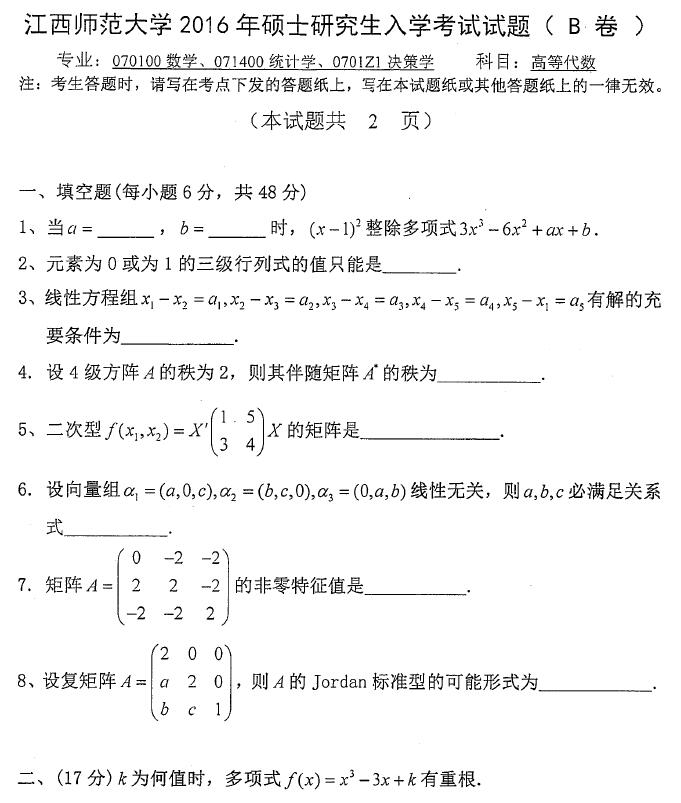 江西师范大学 2016 年硕士研究生入学考试试题（ B 卷 ）
专业：070100 数学、071400 统计学、0701Z1 决策学 科目：高等代数
注：考生答题时，请写在考点下发的答题纸上，写在本试题纸或其他答题纸上的一律无效。
（本试题共 2 页）
一、填空题(每小题 6 分，共 48 分)
1、当 a = ______ ，b = ______ 时，(x−1)² 整除多项式 3x³ − 6x² + ax + b .
2、元素为 0 或为 1 的三级行列式的值只能是________.
3、线性方程组 x₁ − x₂ = a₁, x₂ − x₃ = a₂, x₃ − x₄ = a₃, x₄ − x₅ = a₄, x₅ − x₁ = a₅ 有解的充
要条件为____________.
4. 设 4 级方阵 A 的秩为 2，则其伴随矩阵 A* 的秩为___________.
5、二次型 f(x₁, x₂) = X′ (1 5
3 4) X 的矩阵是_______________.
6. 设向量组 α₁ = (a,0,c), α₂ = (b,c,0), α₃ = (0,a,b) 线性无关，则 a,b,c 必满足关系
式___________.
7. 矩阵 A = (0 −2 −2
2 2 −2
−2 −2 2) 的非零特征值是___________.
8、设复矩阵 A = (2 0 0
a 2 0
b c 1)，则 A 的 Jordan 标准型的可能形式为____________.
二、(17 分) k 为何值时，多项式 f(x) = x³ − 3x + k 有重根.